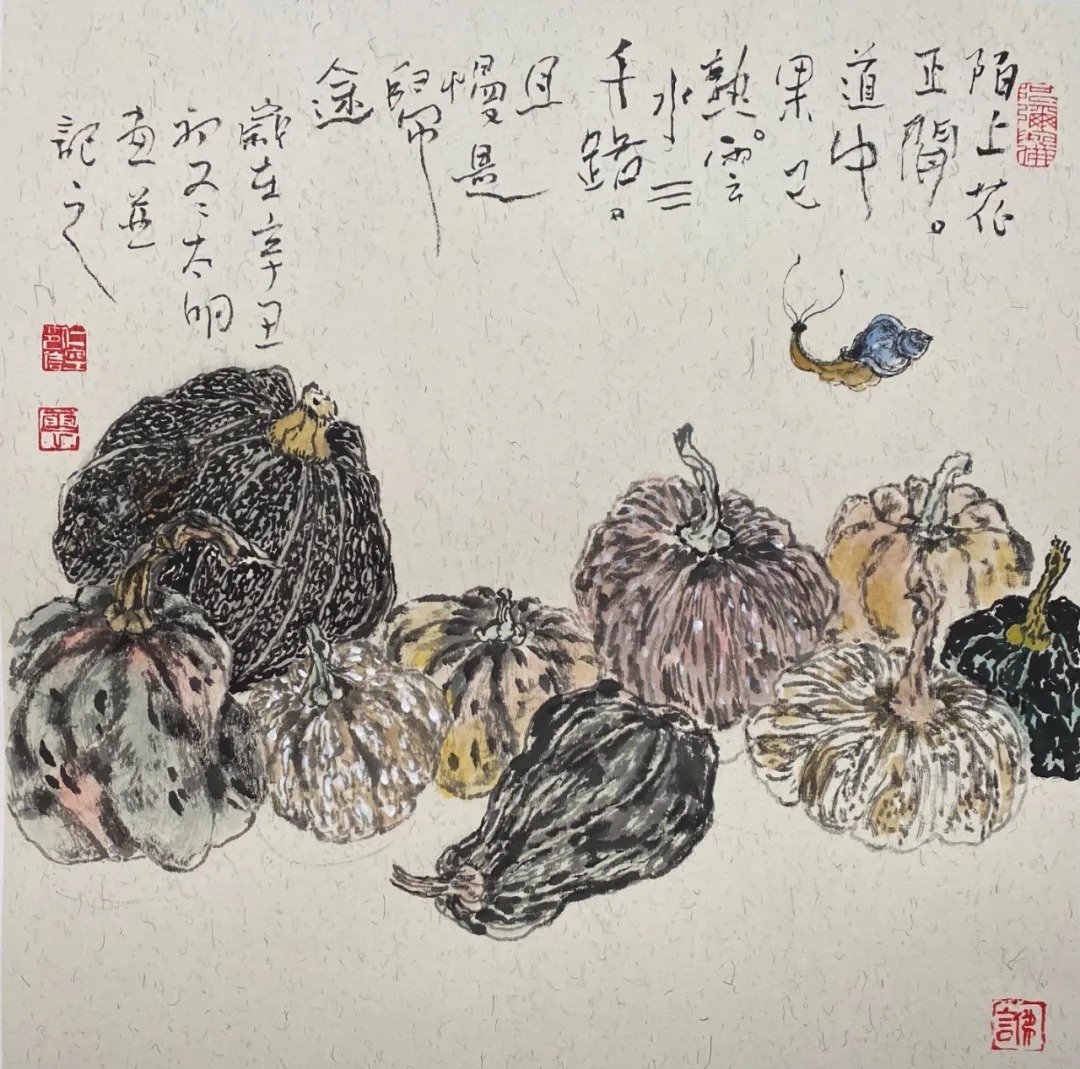 陌上花
正開。
道中
果已
熟。雲
水三
千路。
且
慢是
歸
途
歲在辛丑
初又太朗
畫並
記之
阿彌陀佛